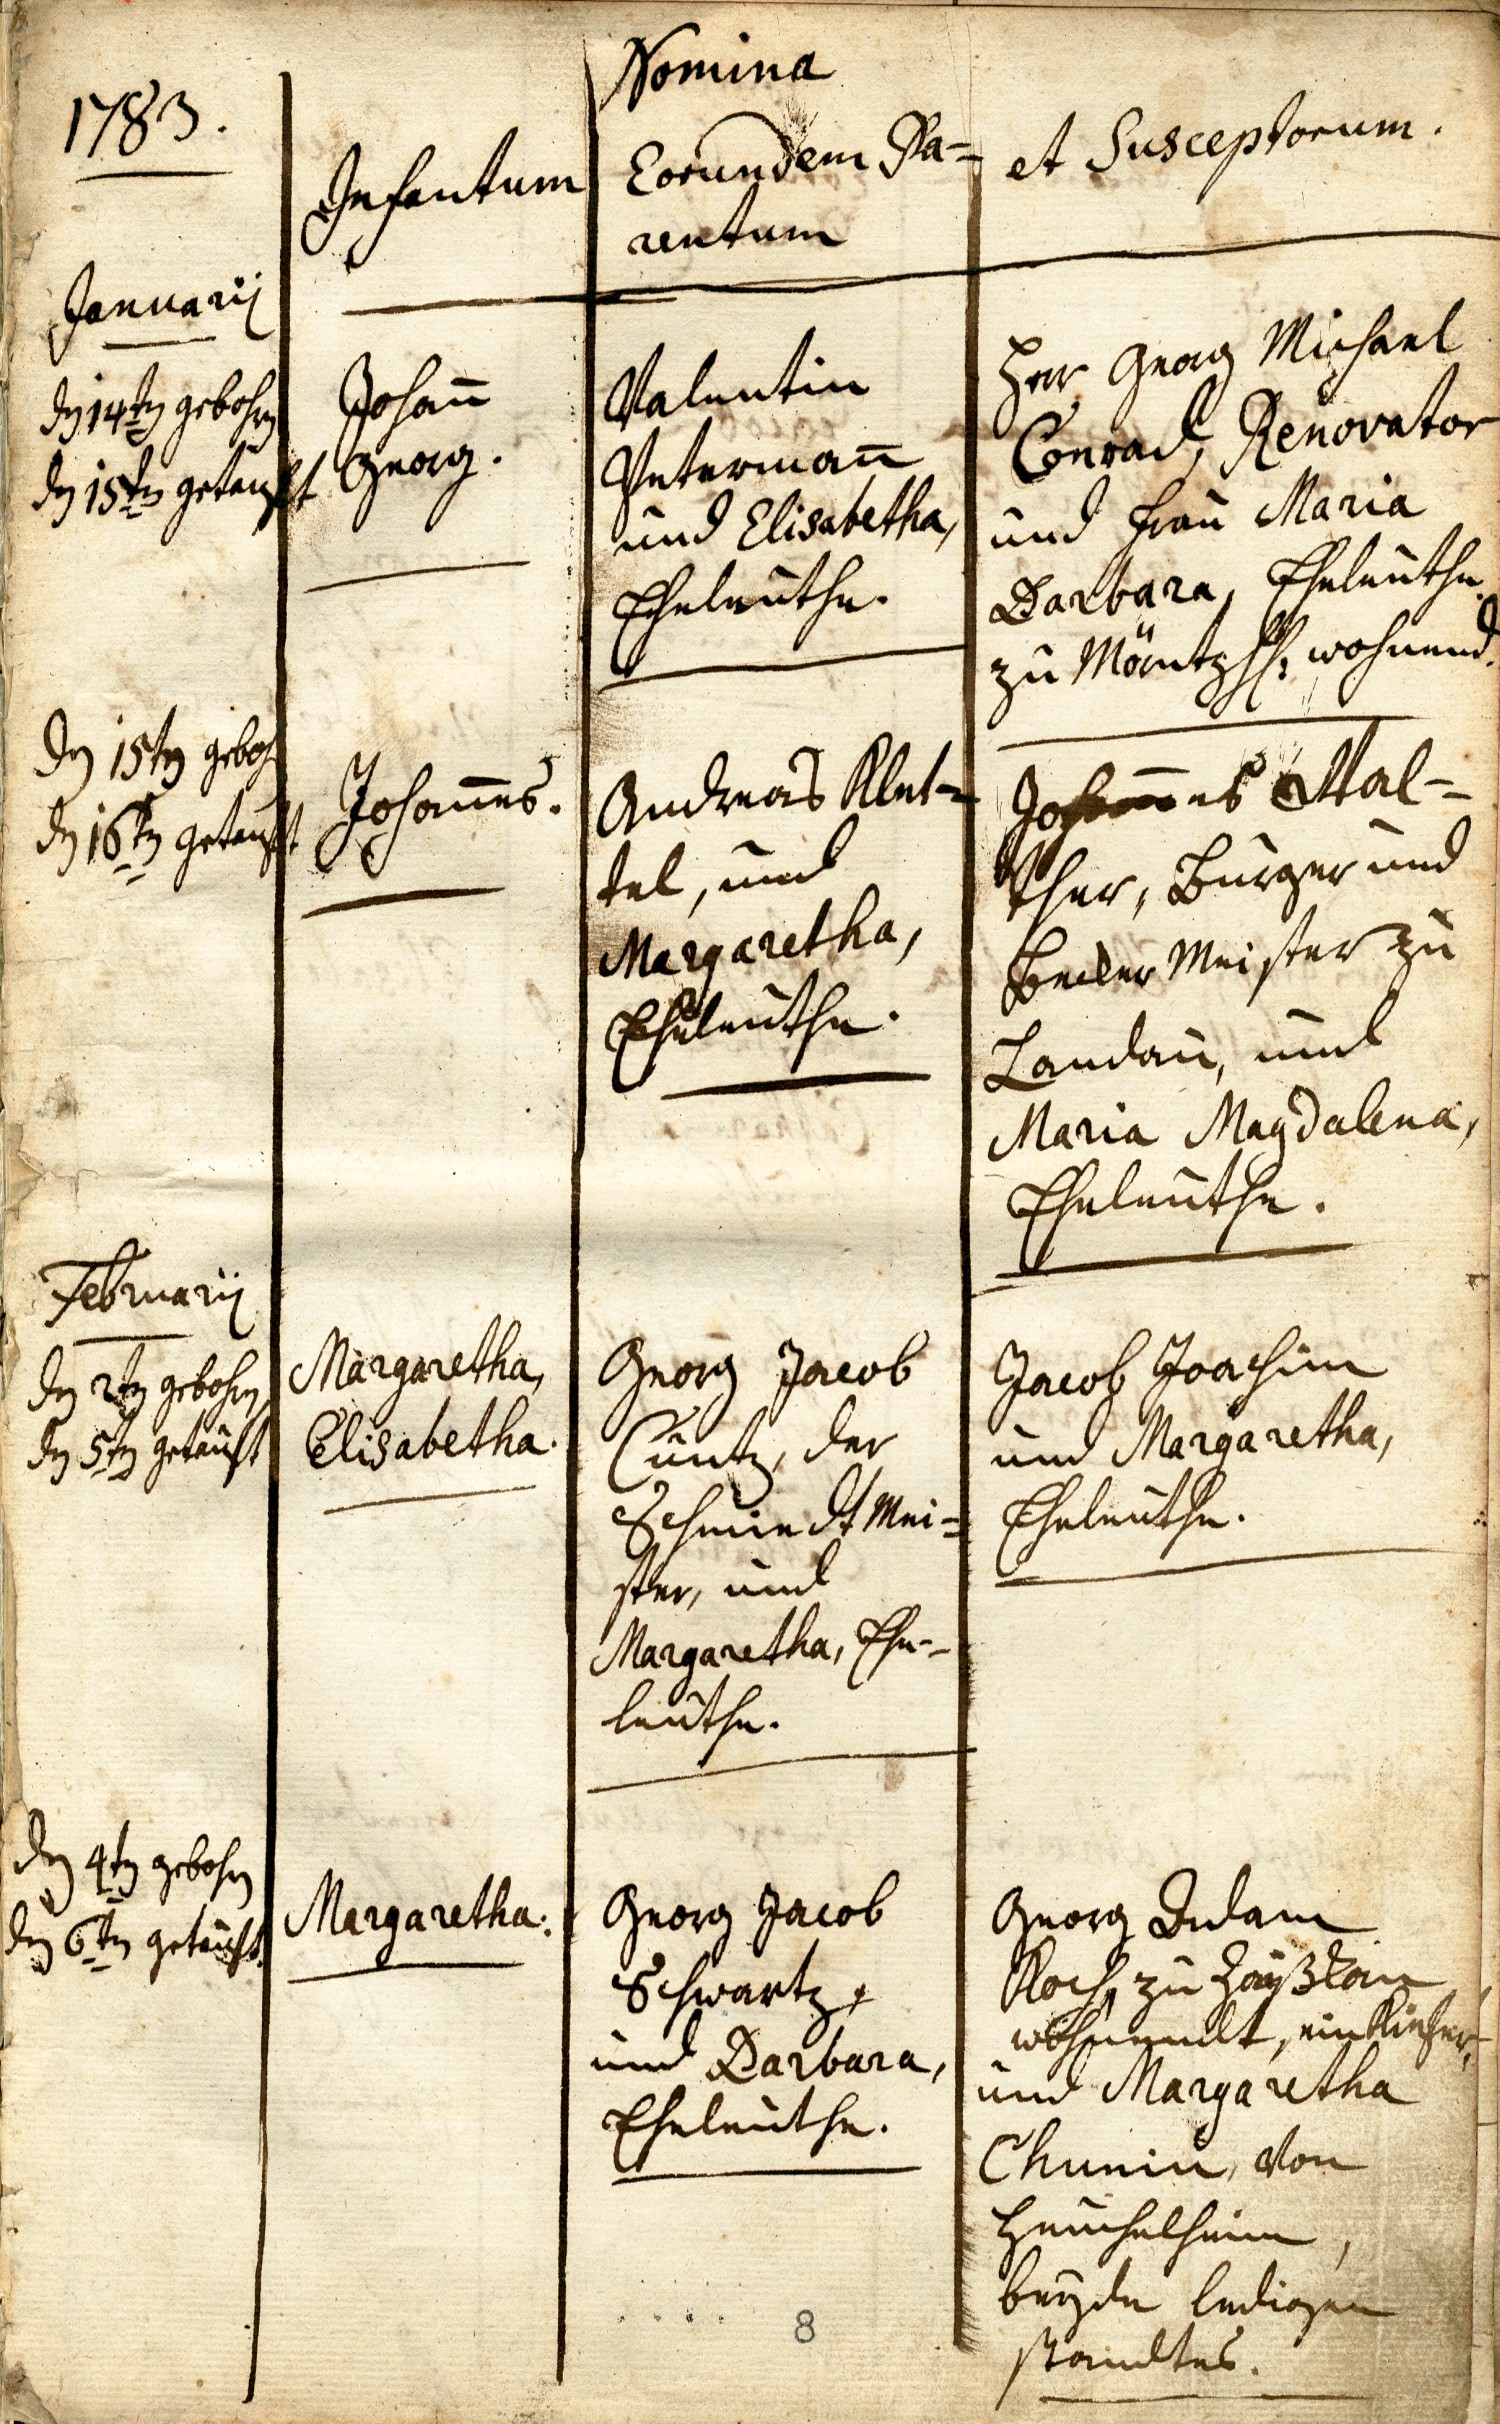 1783.
Nomina
Infantum
Eorundem Pa-
rentum
et Susceptorum.
Januarij
den 14ten gebohren
den 15ten getauft
Johan̄
Georg.
Valentin
Peterman̄
und Elisabetha,
Eheleuthe.
Herr Georg Michael
Conrad, Renovator
und Frau Maria
Barbara, Eheleuthe
zu Mörntzh: wohnend.
den 15ten geboh
den 16ten getauft
Johan̄es.
Andreas Klet-
tel, und
Margaretha,
Eheleuthe.
Johannes Wal-
ther, Burger und
Becker Meister zu
Landau, und
Maria Magdalena,
Eheleuthe.
Februarij
den 2ten gebohren
den 5ten getauft
Margaretha,
Elisabetha.
Georg Jacob
Cuntz, der
Schmiedt Mei-
ster, und
Margaretha, Ehe-
leuthe.
Jacob Joachim
und Margaretha,
Eheleuthe.
den 4ten gebohren
den 6ten getauft.
Margaretha.
Georg Jacob
Schwartz,
und Barbara,
Eheleuthe.
Georg Adam
Koch, zu
wohnendt, ein Kiefer,
und Margaretha
Chunin, von
Heuchelheim,
beyde ledigen
standtes.
8